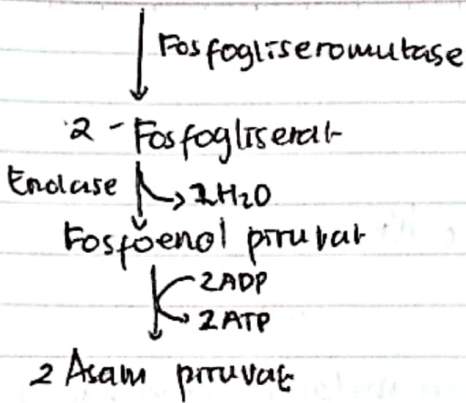 Fosfogliseromutase
2 - Fosfogliserat
Enolase
2H2O
Fosfoenol piruvat
2ADP
2ATP
2 Asam piruvat